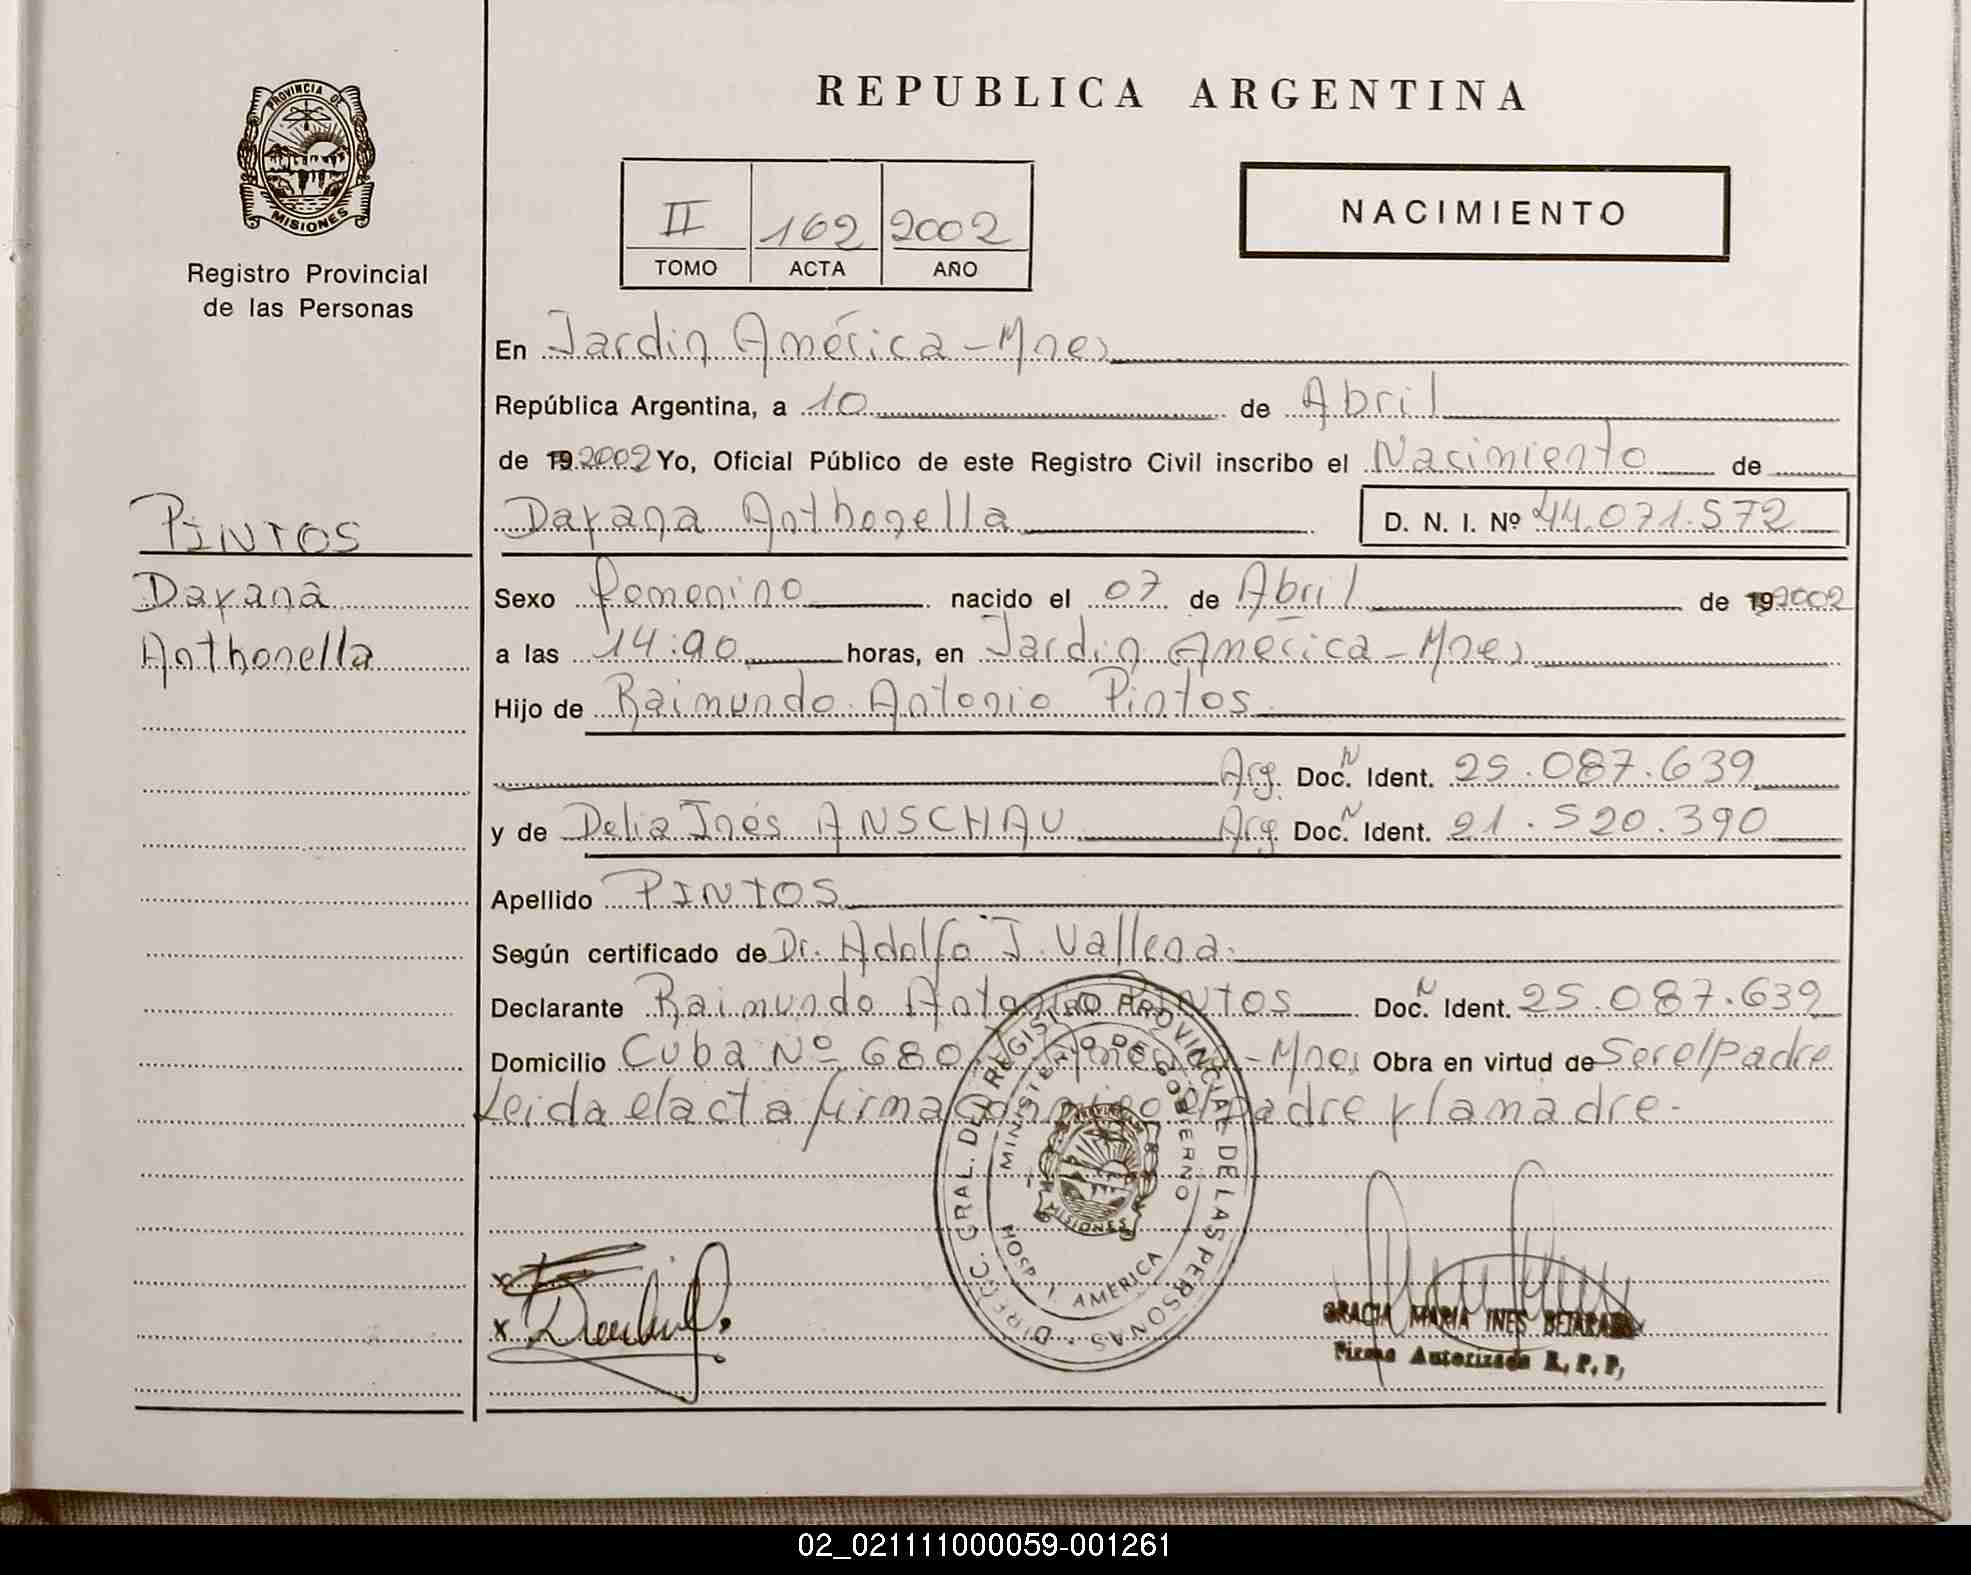 REPUBLICA ARGENTINA
PROVINCIA DE
MISIONES
Registro Provincial
de las Personas
II 162 2002
TOMO ACTA AÑO
NACIMIENTO
En Jardin América - Mnes
República Argentina, a 10 de Abril
de 19 2002 Yo, Oficial Público de este Registro Civil inscribo el Nacimiento de
PINTOS
Dayana Anthonella D. N. I. Nº 44.071.572
Dayana
Sexo Femenino nacido el 07 de Abril de 19 2002
Anthonella
a las horas, en Jardin América - Mnes
Hijo de Raimundo Antonio Pintos
Arg. Doc. N Ident. 25.087.639
y de Delia Inés ANSCHAU Arg Doc. N Ident. 21.520.390
Apellido PINTOS
Según certificado de Dr. Adolfo J. Vallena.
Declarante Raimundo Antonio PINTOS Doc. N Ident. 25.087.639
Domicilio Cuba Nº 680 - Mnes Obra en virtud de Ser el padre
Leida el acta firma conmigo el padre y la madre.
DIRECC. GRAL. DEL REGISTRO PROVINCIAL DE LAS PERSONAS
MINISTERIO DE GOBIERNO
MISIONES
HOSP. J. AMERICA
GRACIA MARIA INES
Firma Autorizada R. P. P.
02_021111000059-001261